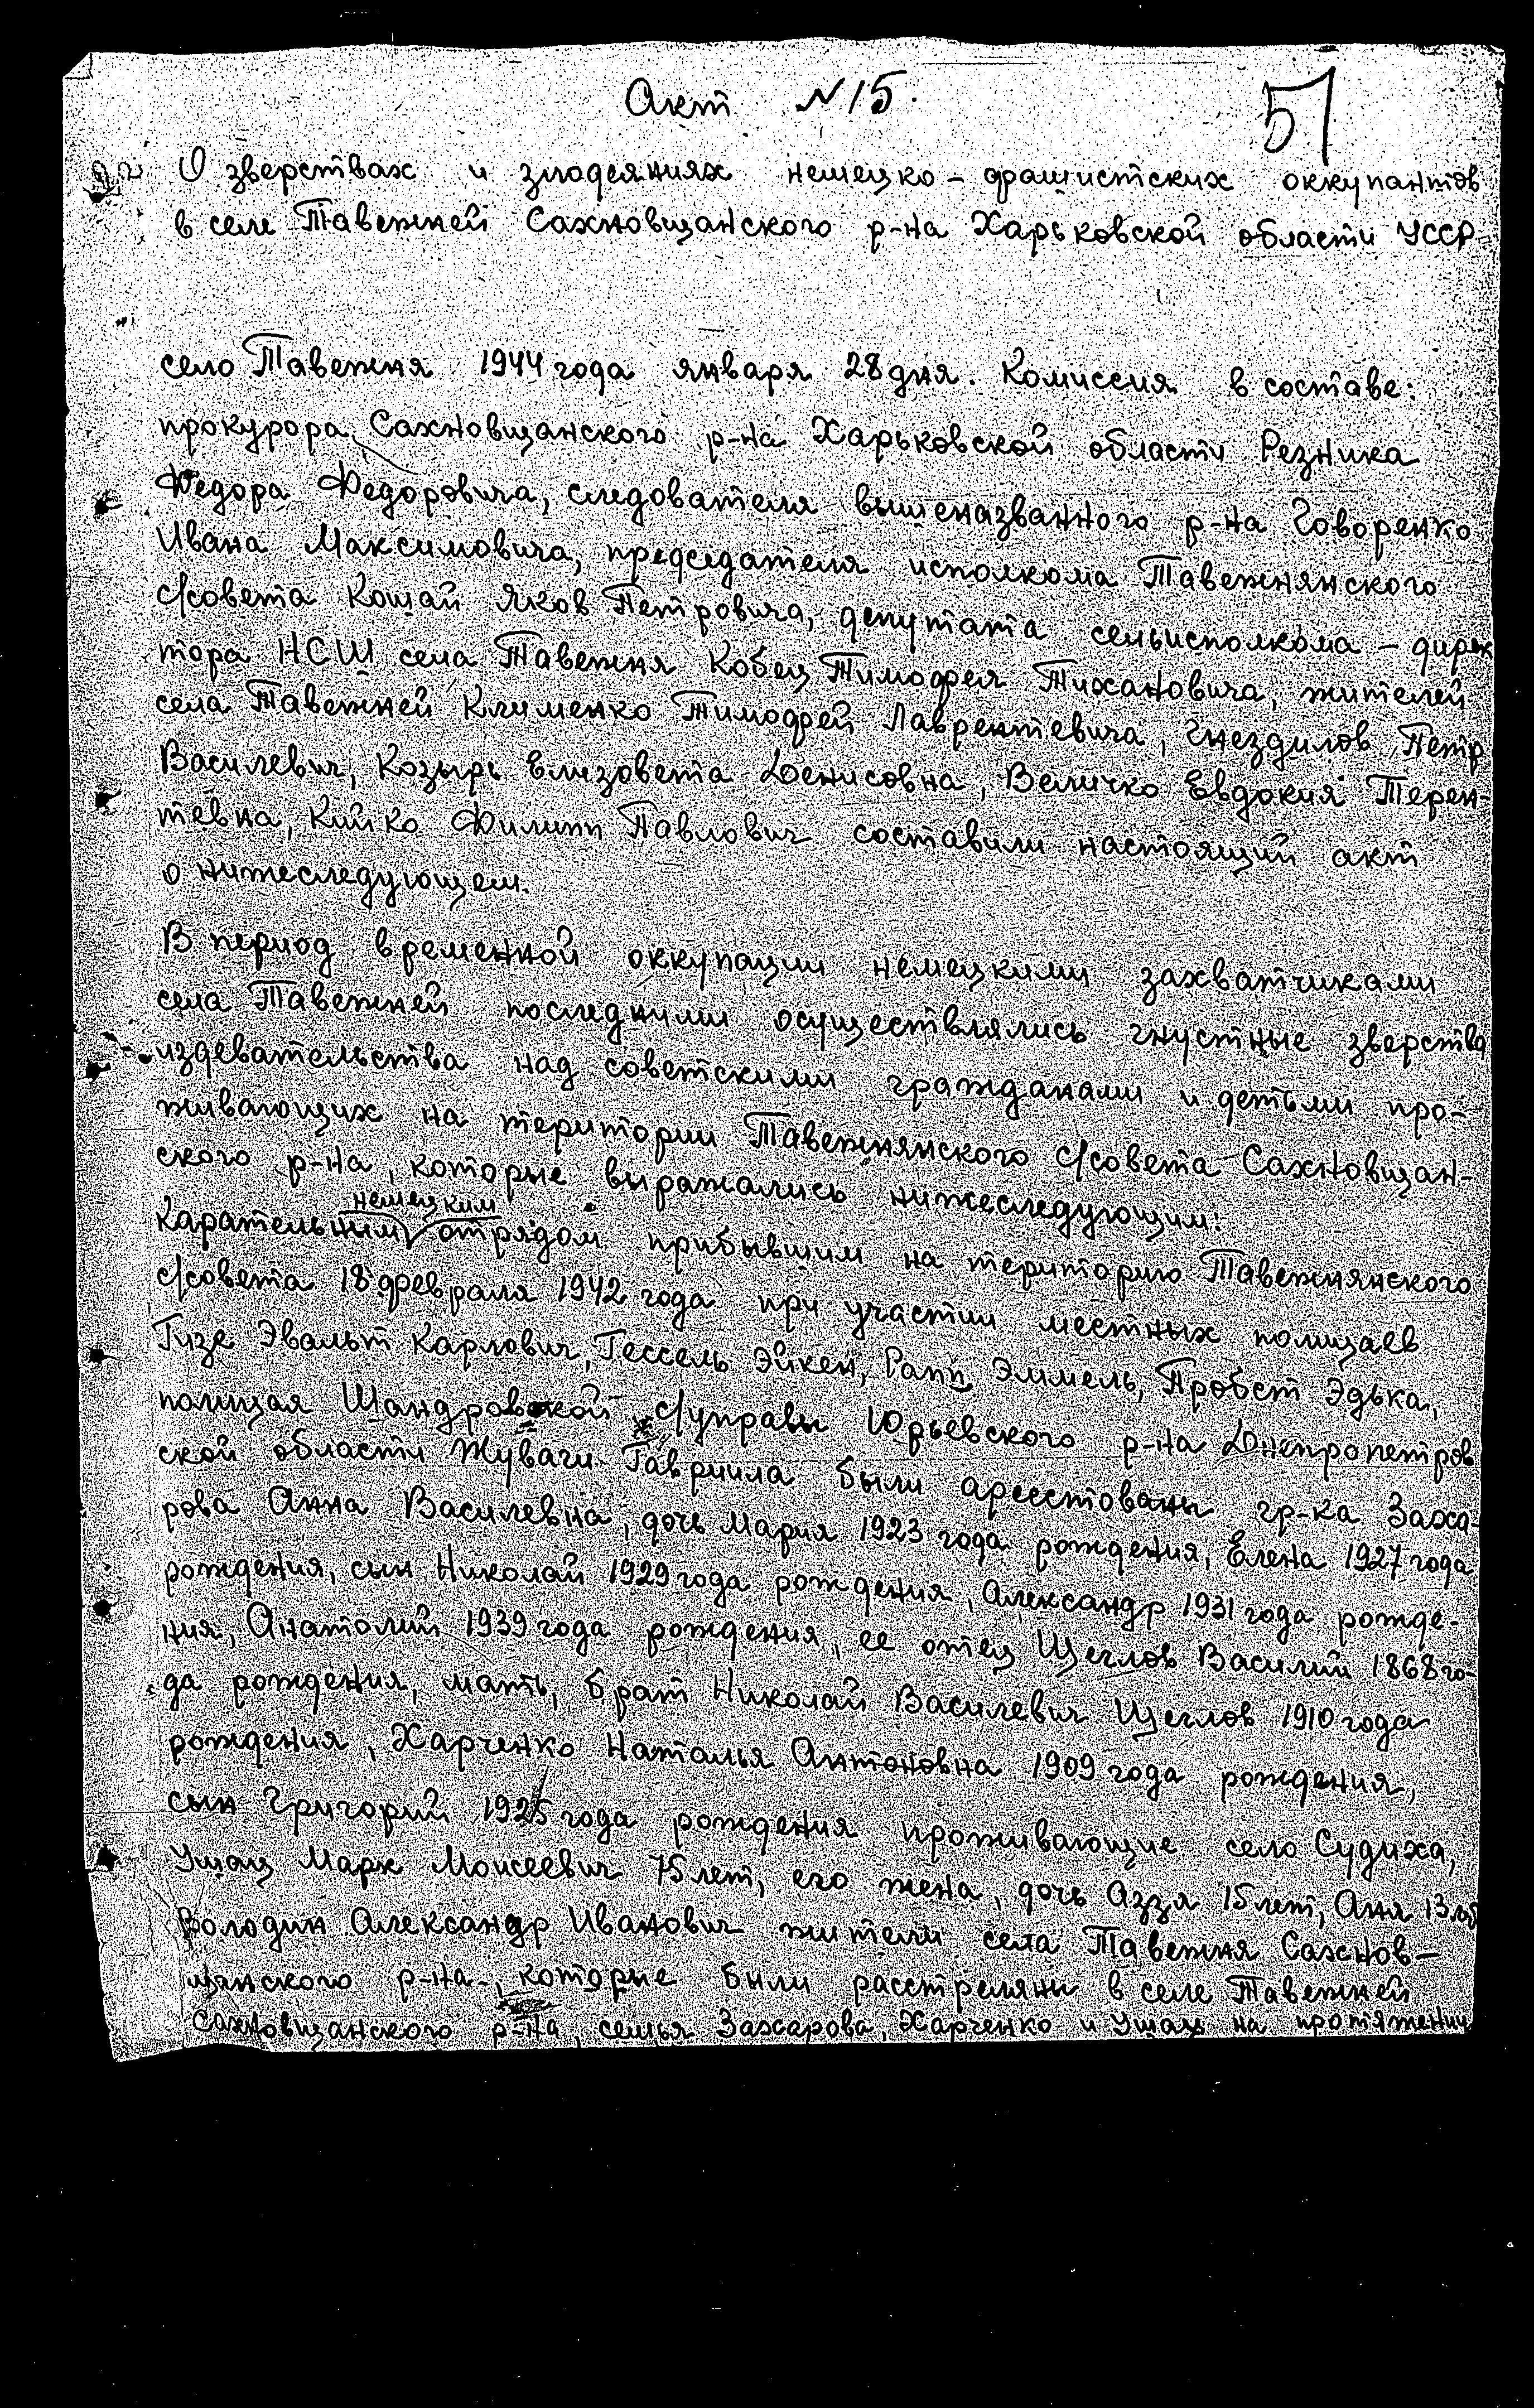 Акт N 15.
51
О зверствах и злодеяниях немецко-фашистских оккупантов
в селе Тавежней Сахновщанского р-на Харьковской области УССР
село Тавежня 1944 года января 28 дня. Комиссия в составе:
прокурора Сахновщанского р-на Харьковской области Резника
Федора Федоровича, следователя вышеназванного р-на Говоренко
Ивана Максимовича, председателя исполкома Тавежнянского
с/совета Кошай Яков Петровича, депутата сельисполкома - дирек
тора НСШ села Тавежня Кобец Тимофея Тихановича, жителей
села Тавежней Клименко Тимофей Лаврентевича, Гнездилов Петр
Василевич, Козырь Елизовета Денисовна, Величко Евдокия Терен-
тевна, Кийко Филипп Павлович составили настоящий акт
о нижеследующем.
В период временной оккупации немецкими захватчиками
села Тавежней последними осуществлялись гнустные зверства
издевательства над советскими гражданами и детьми про-
живающих на територии Тавежнянского с/совета Сахновщан-
ского р-на, которые выражались нижеследующим:
Карательным немецким отрядом прибывшим на територию Тавежнянского
с/совета 18 февраля 1942 года при участии местных полицаев
Гизе Эвальт Карлович, Гессель Эйкен, Рапп Эммель, Пробст Эдька,
полицая Шандровской с/управы Юрьевского р-на Днепропетров
ской области Жуваги Гавриила были арестованы гр-ка Заха-
рова Анна Василевна, дочь Мария 1923 года рождения, Елена 1927 года
рождения, сын Николай 1929 года рождения, Александр 1931 года рожде-
ния, Анатолий 1939 года рождения, ее отец Щеглов Василий 1868 го-
да рождения, мать, брат Николай Василевич Щеглов 1910 года
рождения, Харченко Наталья Антоновна 1909 года рождения,
сын Григорий 1925 года рождения проживающие село Судиха,
Ушац Марк Моисеевич 75 лет, его жена, дочь Аззя 15 лет, Аня 13 лет
Володин Александр Иванович жители села Тавежня Сахнов-
щанского р-на, которые были расстреляны в селе Тавежней
Сахновщанского р-на, семья Захарова, Харченко и Ушац на протяжении